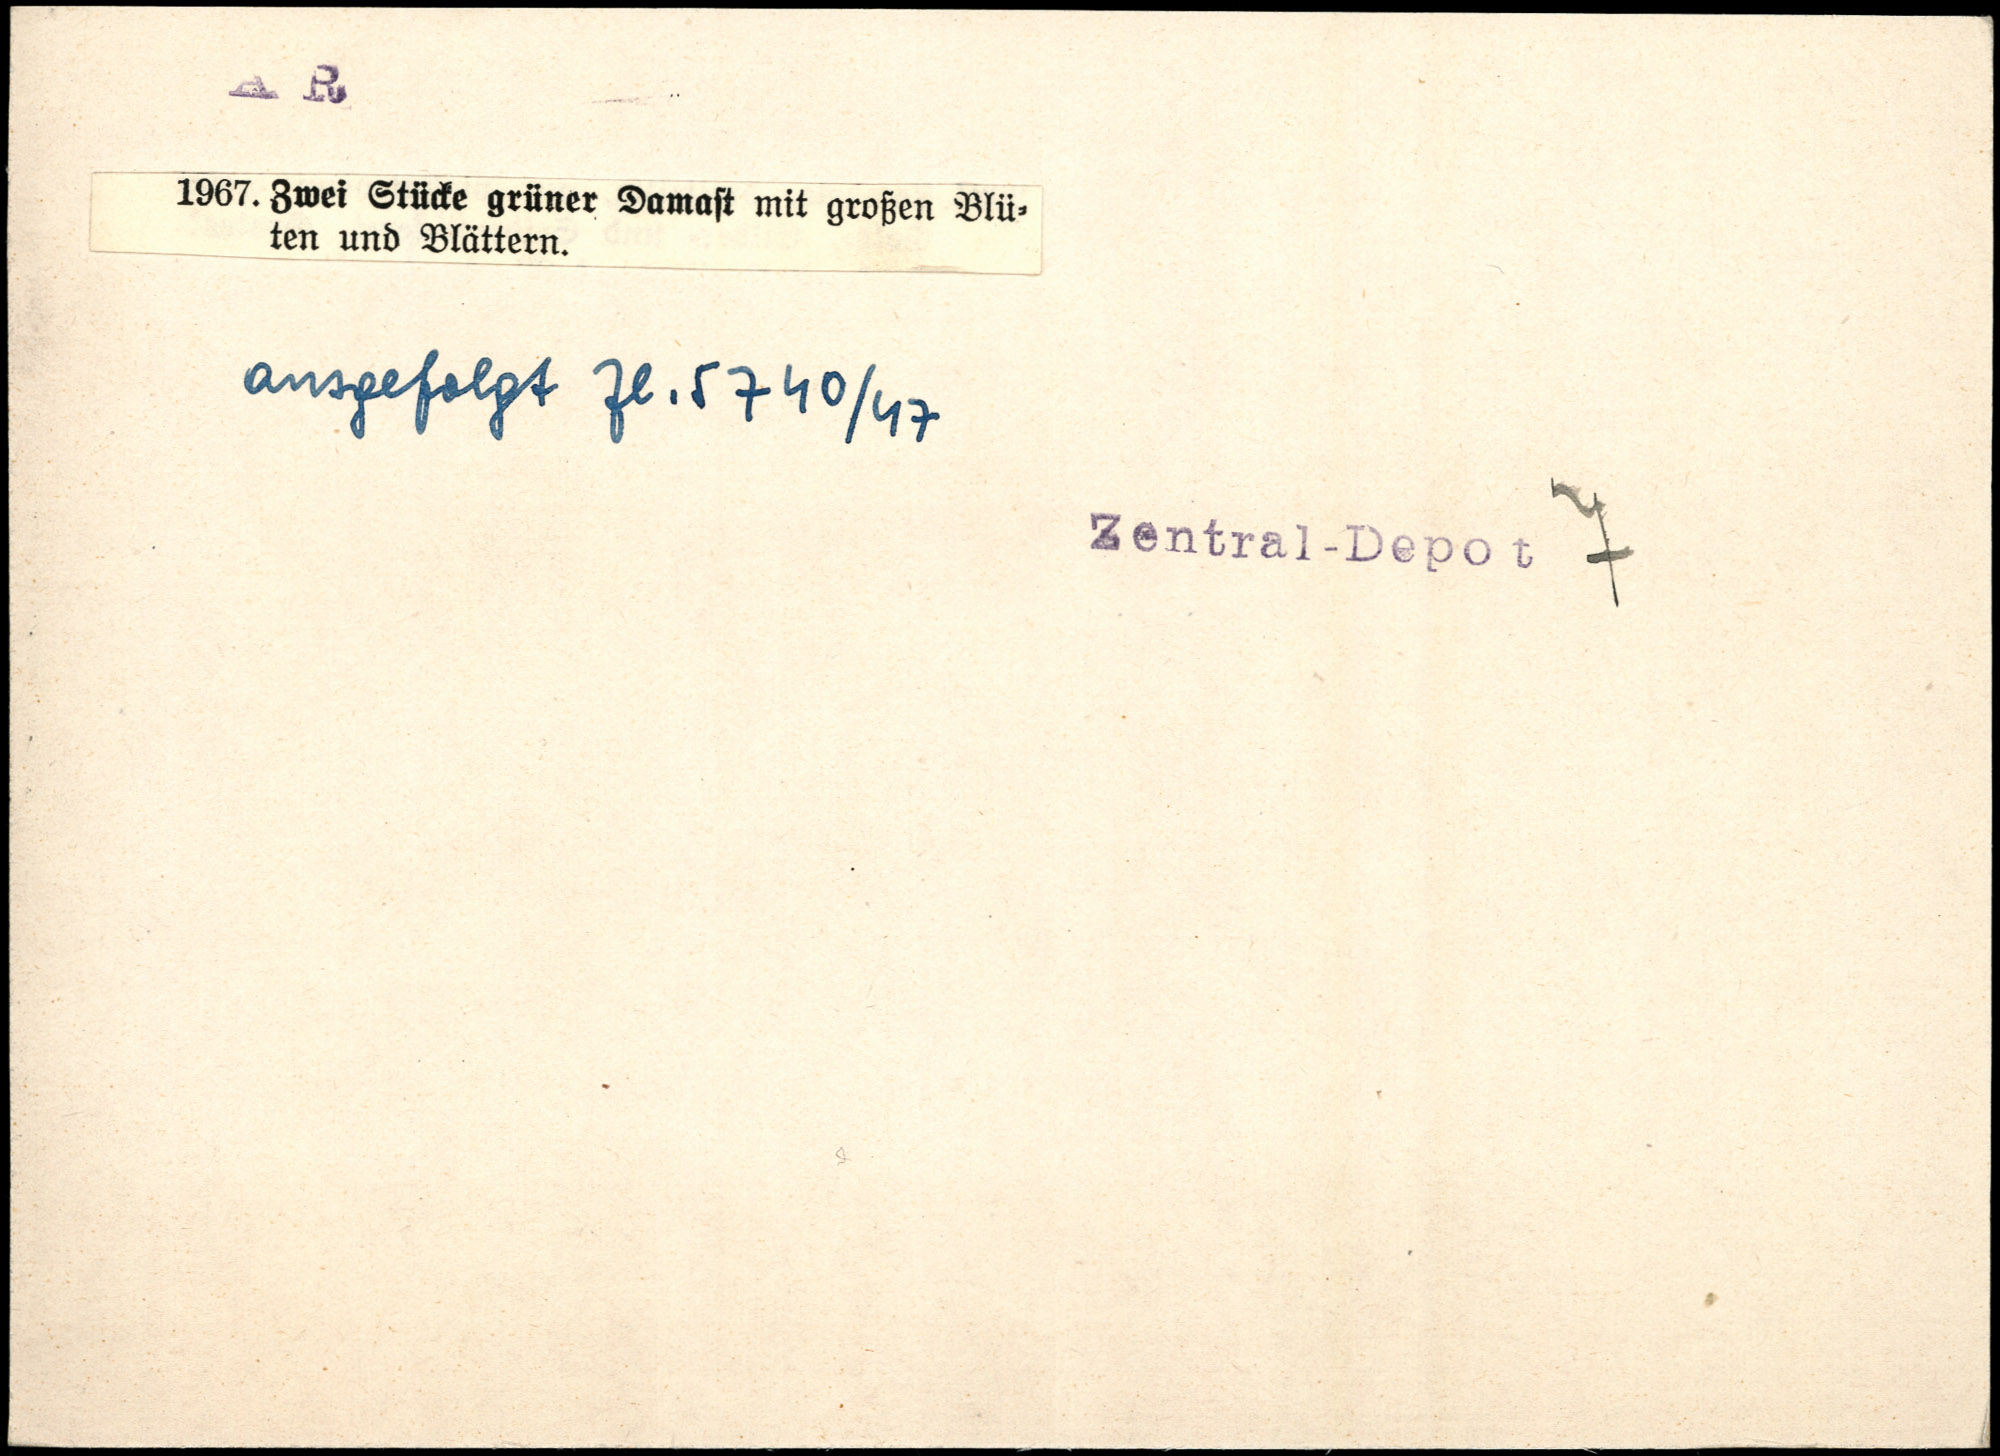 A R
1967. Zwei Stücke grüner Damast mit großen Blü-
ten und Blättern.
ausgefolgt Zl. 5740/47
Zentral-Depot 7